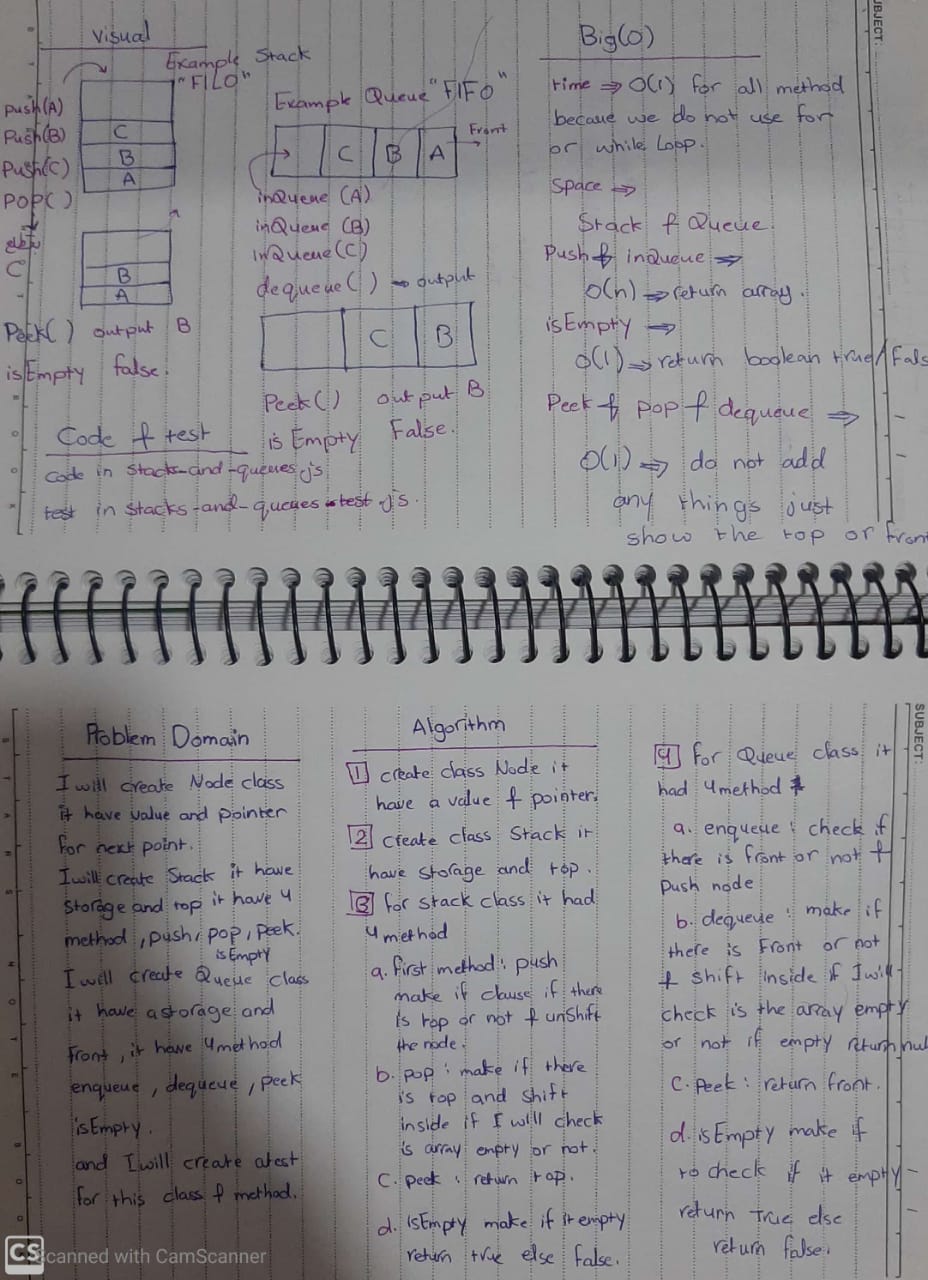 Visual
Example Stack
"FILO"
push(A)
Push(B)
Push(C)
POP()
C
B
A
C
B
A
Peek() output B
isEmpty false.
Example Queue "FIFO"
Front
C B A
inQueue (A)
inQueue (B)
inQueue (C)
dequeue() output
C B
Peek() output B
is Empty False.
Code & test
code in stacks-and-queues.js
test in stacks-and-queues-test.js.
Big(O)
time ⇒ O(1) for all method
becaue we do not use for
or while Loop.
Space ⇒
Stack & Queue.
Push & inQueue ⇒
O(n) ⇒ return array.
isEmpty ⇒
O(1) ⇒ return boolean true/Fals
Peek & pop & dequeue ⇒
O(1) ⇒ do not add
any things just
show the top or front
SUBJECT:
Problem Domain
I will create Node class
it have value and pointer
for next point.
I will create Stack it have
storage and top it have 4
method, push, pop, peek.
isEmpty
I will create Queue class
it have a storage and
Front, it have 4 method
enqueue, dequeue, peek
isEmpty.
and I will create atest
for this class & method.
Algorithm
1 create class Node it
have a value & pointer.
2 create class Stack it
have storage and top.
3 for stack class it had
4 method
a. first method: push
make if clause if there
is top or not & unshift
the node.
b. pop: make if there
is top and shift
inside if I will check
is array empty or not.
C. peek: return top.
d. isEmpty make if it empty
return true else false.
4 for Queue class it
had 4 method
a. enqueue: check if
there is front or not &
push node
b. dequeue: make if
there is Front or not
& shift inside if I will
check is the array empty
or not if empty return nul
C. Peek: return front.
d. isEmpty make if
to check if it empty
return True else
return false.
SUBJECT:
CS Scanned with CamScanner